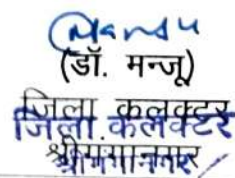 Manju
(डॉ. मन्जू)
जिला कलक्टर
जिला कलक्टर
श्रीगंगानगर
श्रीगंगानगर